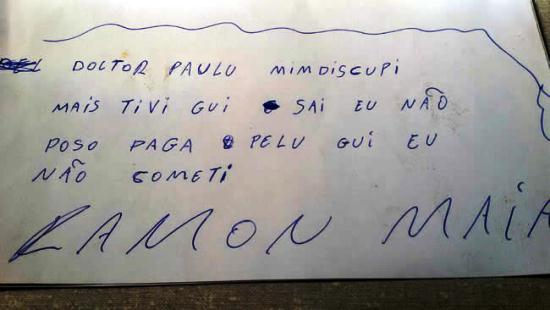 DOCTOR PAULU MIMDISCUPI
MAIS TIVI GUI SAI EU NÃO
POSO PAGA PELU GUI EU
NÃO COMETI
RAMON MAIA